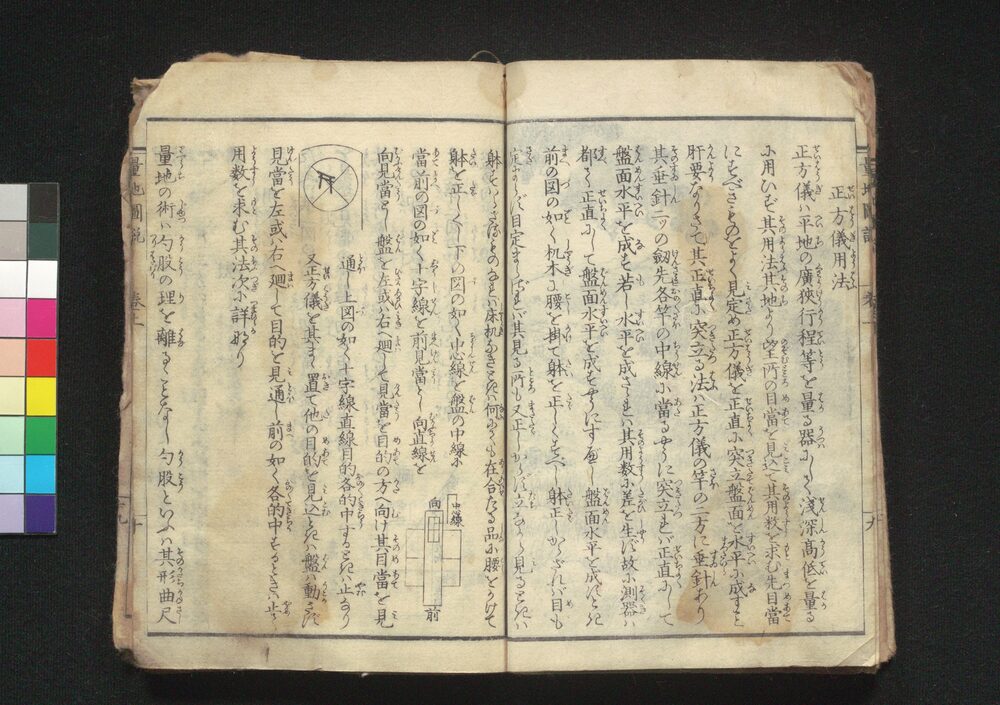 正方儀用法
正方儀ハ平地の廣狹行程等を量る器にして淺深高低を量る
に用ひず其用法其地より望所の目當を見込て其用數を求む先目當
にすべきものをよく見定め正方儀を正直に突立盤面を水平に成すこと
肝要なりさて其正直に突立る法ハ正方儀の竿の二方に垂針あり
其垂針二ツの劔先各竿の中線に當るやうに突立れバ正直にして
盤面水平を成す若し水平を成さゞれバ其用數に差を生ず故に測器ハ
都て正直にして盤面水平を成すやうにすべし盤面水平を成すとき
前の図の如く机木に腰を掛て躰を正しくすべし躰正しからざれバ目も
定まらず目定まらざれバ其見る所も又正しからず立ながら見るときハ
躰すわらざるものなれバ床机なきときハ何にても在合たる品に腰をかけて
躰を正しくし下の図の如く中心線を盤の中線に
當前の図の如く十字線を前見當とし向直線を
向見當とし盤を左或ハ右へ廻して見當を目的の方へ向け其目當を見
中線
向
前
通し上図の如く十字線直線目的各的中するときハ止るなり
又正方儀を其まゝ置て他の目的を見込ときハ盤ハ動さず
見當を左或ハ右へ廻して目的を見通し前の如く各的中するときハ止て
用數を求む其法次に詳なり
量地の術ハ勾股の理を離るゝことなし勾股といふハ其形曲尺
量地圖説 卷上
九
十